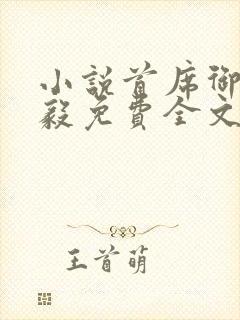 小說首席御
毅免費全文
王首萌